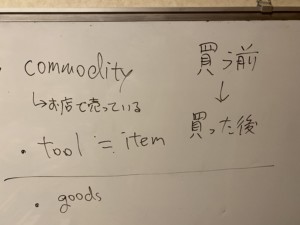 ・commodity
↳お店で売っている
・tool ≒ item
・goods
買う前
↓
買った後